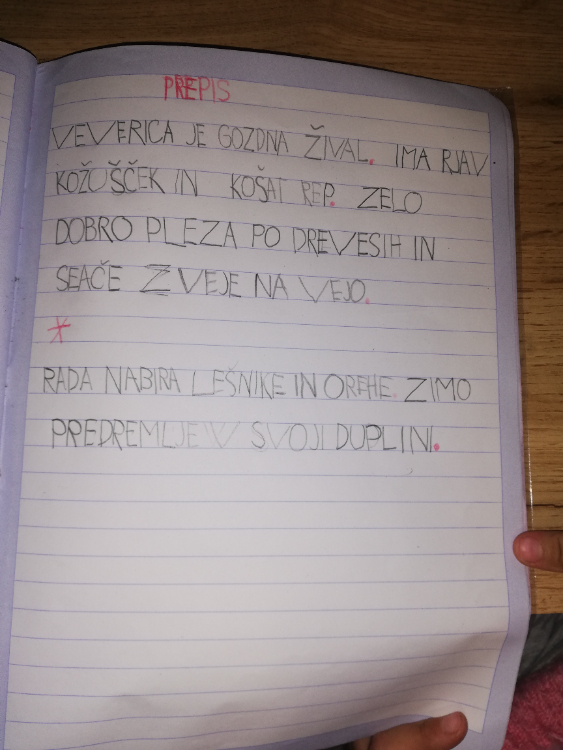 PREPIS
VEVERICA JE GOZDNA ŽIVAL. IMA RJAV
KOŽUŠČEK IN KOŠAT REP. ZELO
DOBRO PLEZA PO DREVESIH IN
SEAČE Z VEJE NA VEJO.
*
RADA NABIRA LEŠNIKE IN OREHE. ZIMO
PREDREMLJE V SVOJI DUPLINI.